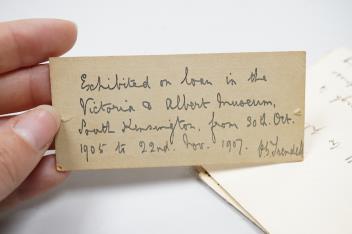 Exhibited on loan in the
Victoria & Albert Museum,
South Kensington, from 30th. Oct.
1905 to 22nd. Nov. 1907.